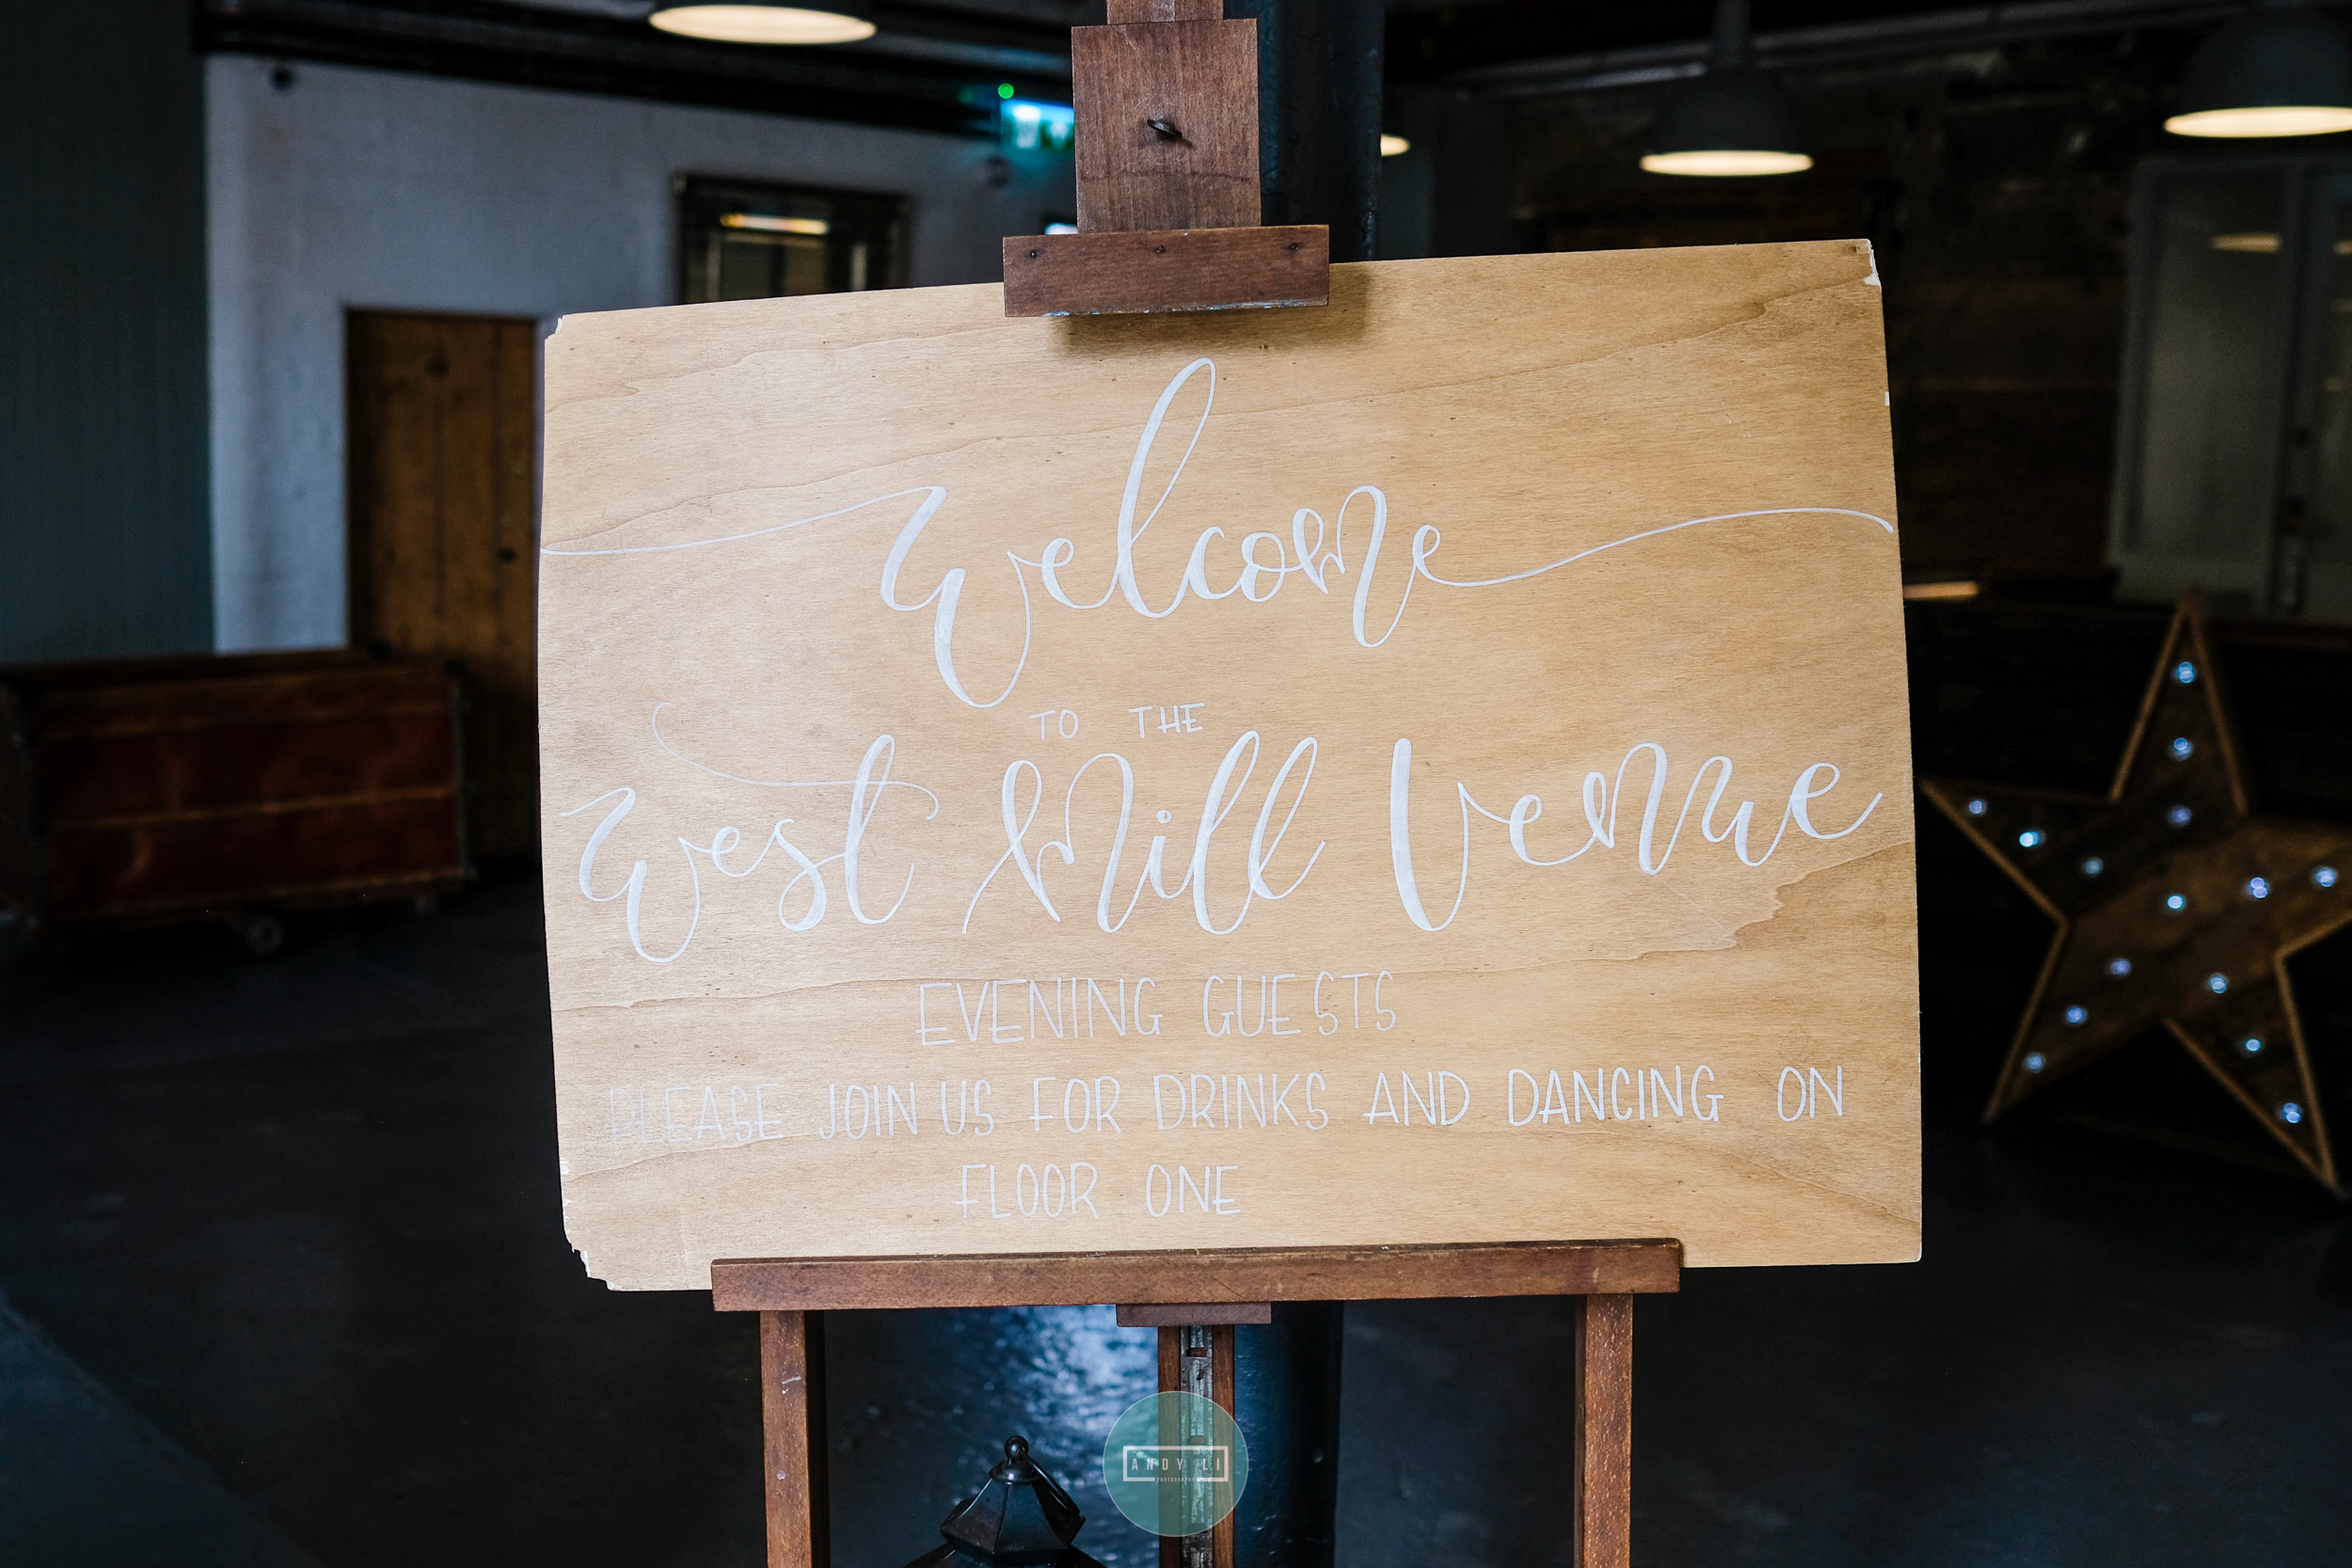 Welcome
TO THE
West Mill Venue
EVENING GUESTS
PLEASE JOIN US FOR DRINKS AND DANCING ON
FLOOR ONE
ANDY LI
PHOTOGRAPHY